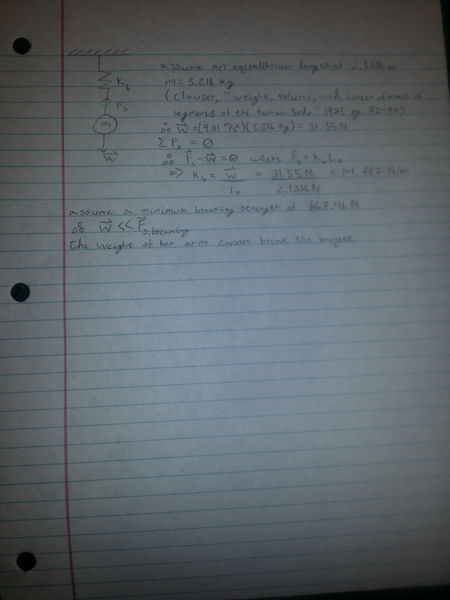 assume an equilibrium length of 2.1336 m
K_b
m = 3.216 kg
F_s
(Clauser, "weight, volume, and center of mass of
segments of the human body" 1975 pg.
m
∴ W = (9.81 m/s²)(3.216 kg) = 31.55 N
W
Σ F_x = 0
∴ F_s - W = 0 where F_s = K_b l_0
=> K_b = W / l_0 = 31.55 N / 2.1336 N = 14.787 N/m
assume a minimum breaking strength of 667.96 N
∴ W << F_0,breaking
the weight of her arm cannot break the